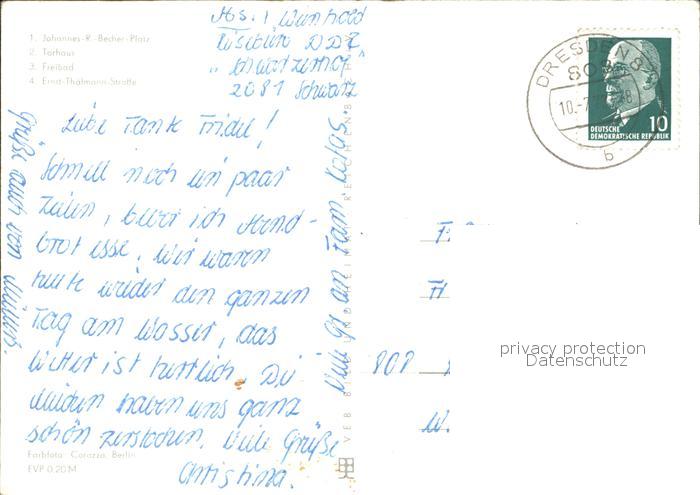 1. Johannes-R.-Becher-Platz
2. Torhaus
3. Freibad
4. Ernst-Thälmann-Straße
Abs.:
2081 Schwarz
DRESDEN
DEUTSCHE
DEMOKRATISCHE REPUBLIK
10
b
Liebe Tante Friedel!
Schnell noch ein paar
Zeilen, bevor ich Abend-
brot esse. Wir waren
heute wieder den ganzen
Tag am Wasser, das
Wetter ist herrlich. Die
haben uns ganz
schön zerstochen. Viele Grüße
Christina.
Grüße auch von
Viele Gr. an Fam.
VEB BILD UND HEIMAT REICHENBACH
privacy protection
Datenschutz
Farbfoto: Corazza, Berlin
EVP 0,20 M